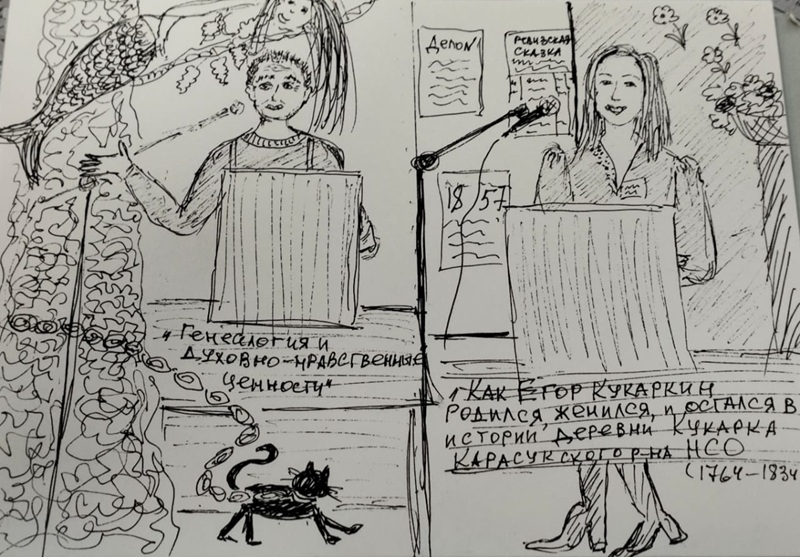 Дело №1
РЕВИЗСКАЯ
СКАЗКА
1857
"ГЕНЕАЛОГИЯ И
ДУХОВНО-НРАВСТВЕННЫЕ
ЦЕННОСТИ"
"КАК ЕГОР КУКАРКИН
РОДИЛСЯ, ЖЕНИЛСЯ, И ОСТАЛСЯ В
ИСТОРИИ ДЕРЕВНИ КУКАРКА
КАРАСУКСКОГО Р-НА НСО
(1764-1834